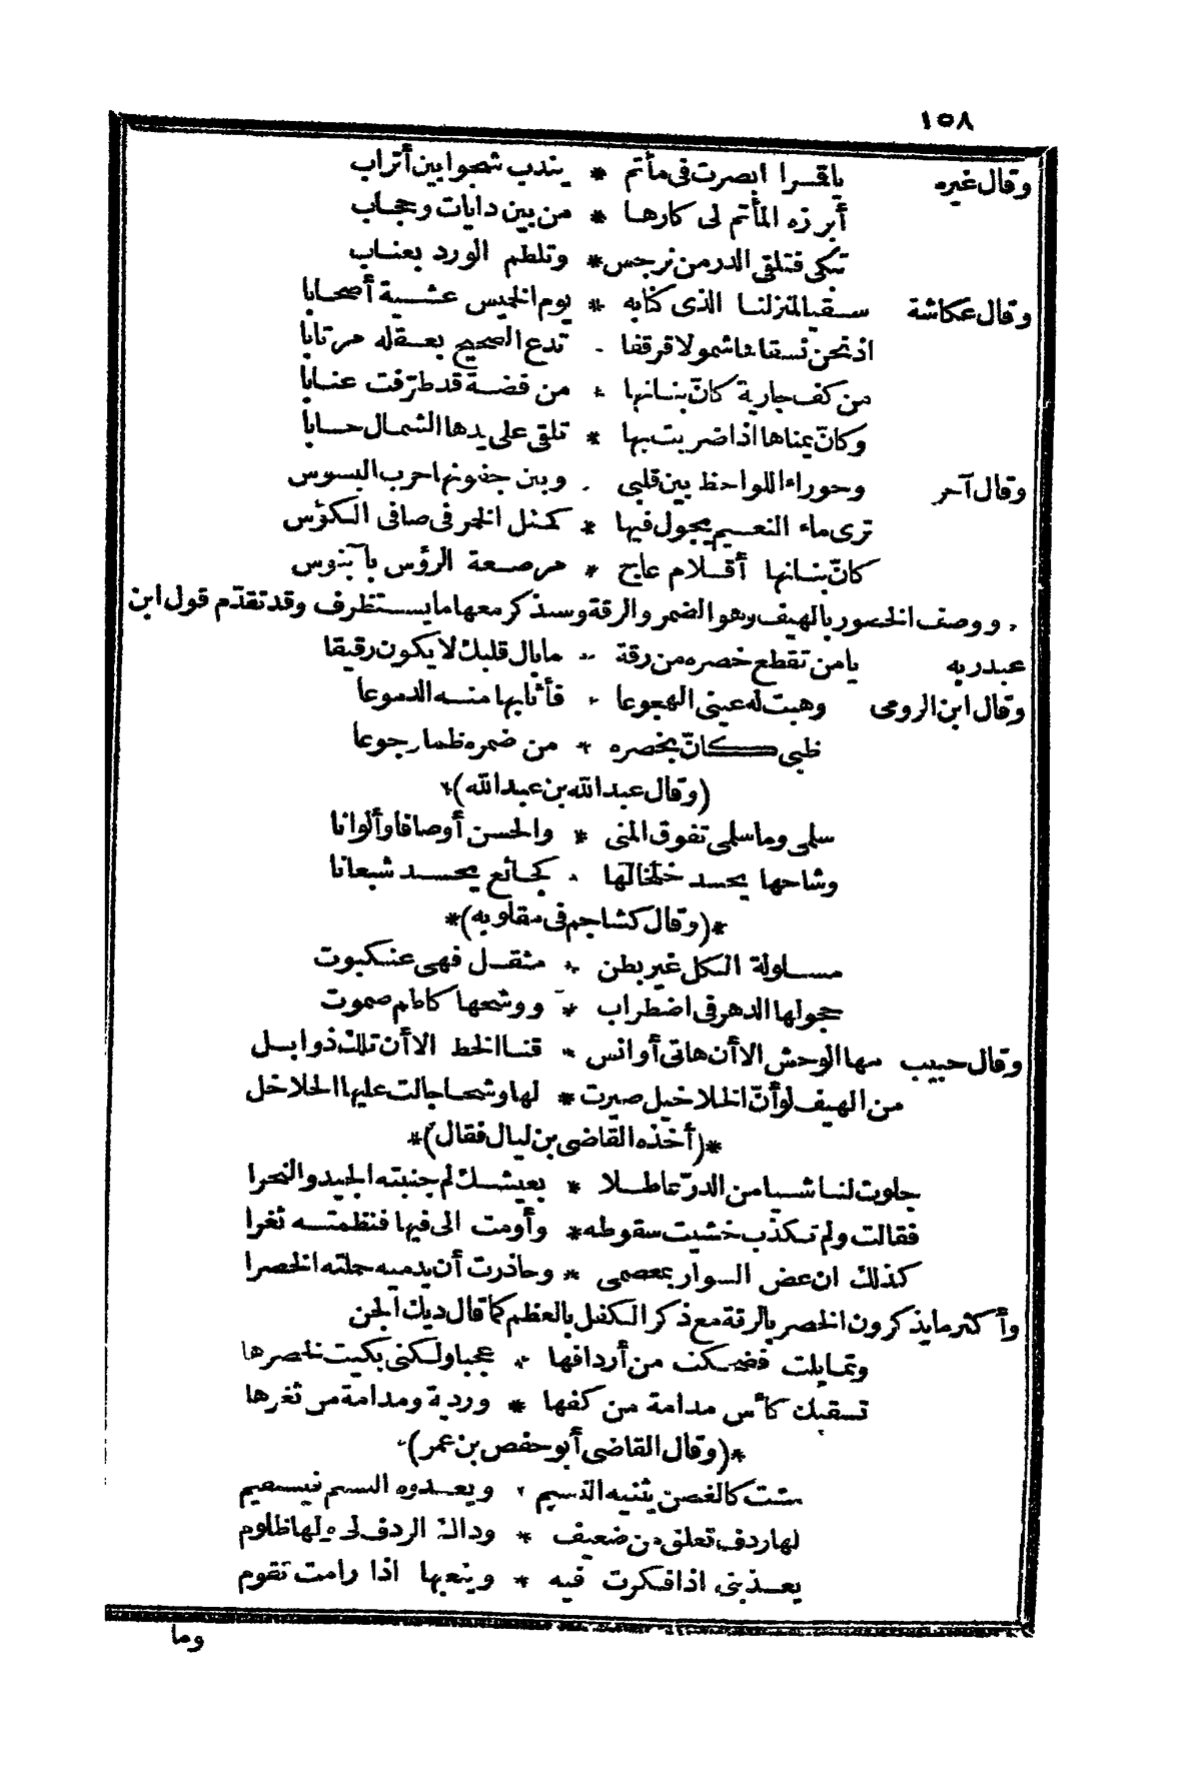 ١٥٨
وقال غيره ياقمرا ابصرت فى مأتم * يندب شجوا بين أتراب
أبرزه المأتم لى كارها * من بين دايات وحجاب
تبكى فتلقى الدر من نرجس * وتلطم الورد بعناب
وقال عكاشة سقيا لمنزلنا الذى كنا به * يوم الخميس عشية أصحابا
اذ نحن نسقاها شمولا قرقفا * تدع الصحيح بعقله مرتابا
من كف جارية كانّ بنانها * من فضة قد طرّفت عنابا
وكانّ يمناها اذا ضربت بها * تلقى على يدها الشمال حسابا
وقال آخر وحوراء اللواحظ بين قلبى * وبين جفونها حرب البسوس
ترى ماء النعيم يجول فيها * كمثل الخمر فى صافى الكؤس
كانّ بنانها أقلام عاج * مرصعة الرؤس بآبنوس
* ووصف الخصور بالهيف وهو الضمر والرقة وسنذكر معها ما يستظرف وقد تقدّم قول ابن
عبدربه يا من تقطع خصره من رقة * ما بال قلبك لا يكون رقيقا
وقال ابن الرومى وهبت له عينى الهجوعا * فأثابها منه الدموعا
ظبى كانّ بخصره * من ضمره ظمأ وجوعا
(وقال عبد الله بن عبد الله)*
سلمى وما سلمى تفوق المنى * والحسن أوصافا وألوانا
وشاحها يحسد خلخالها * كجائع يحسد شبعانا
*(وقال كشاجم فى مقلوبه)*
مسلولة الكل غير بطن * مثقل فهى عنكبوت
حجولها الدهر فى اضطراب * ووشحها كاظم صموت
وقال حبيب مها الوحش الا أن هاتى أوانس * قنا الخط الا أن تلك ذوابل
من الهيف لو أنّ الخلاخيل صيرت * لها وشحا جالت عليها الخلاخل
*(أخذه القاضى بن لبال فقال)*
جلوت لنا شيا من الدرّ عاطلا * بعيشك لم جنبته الجيد والنحرا
فقالت ولم تكذب خشيت سقوطه * وأومت الى فيها فنظمته ثغرا
كذلك ان عض السوار بمعصمى * وحاذرت أن يدميه حلته الخصرا
وأكثر ما يذكرون الخصر بالرقة مع ذكر الكفل بالعظم كما قال ديك الجن
وتمايلت فضحكت من أردافها * عجبا ولكنى بكيت لخصرها
تسقيك كأس مدامة من كفها * وردية ومدامة من ثغرها
*(وقال القاضى أبو حفص بن عمر)*
مشت كالغصن يثنيه النسيم * ويعدوه النسيم فيستقيم
لها ردف تعلق من ضعيف * وذاك الردف لى ولها ظلوم
يعذبنى اذا فكرت فيه * ويتعبها اذا رامت تقوم
وما